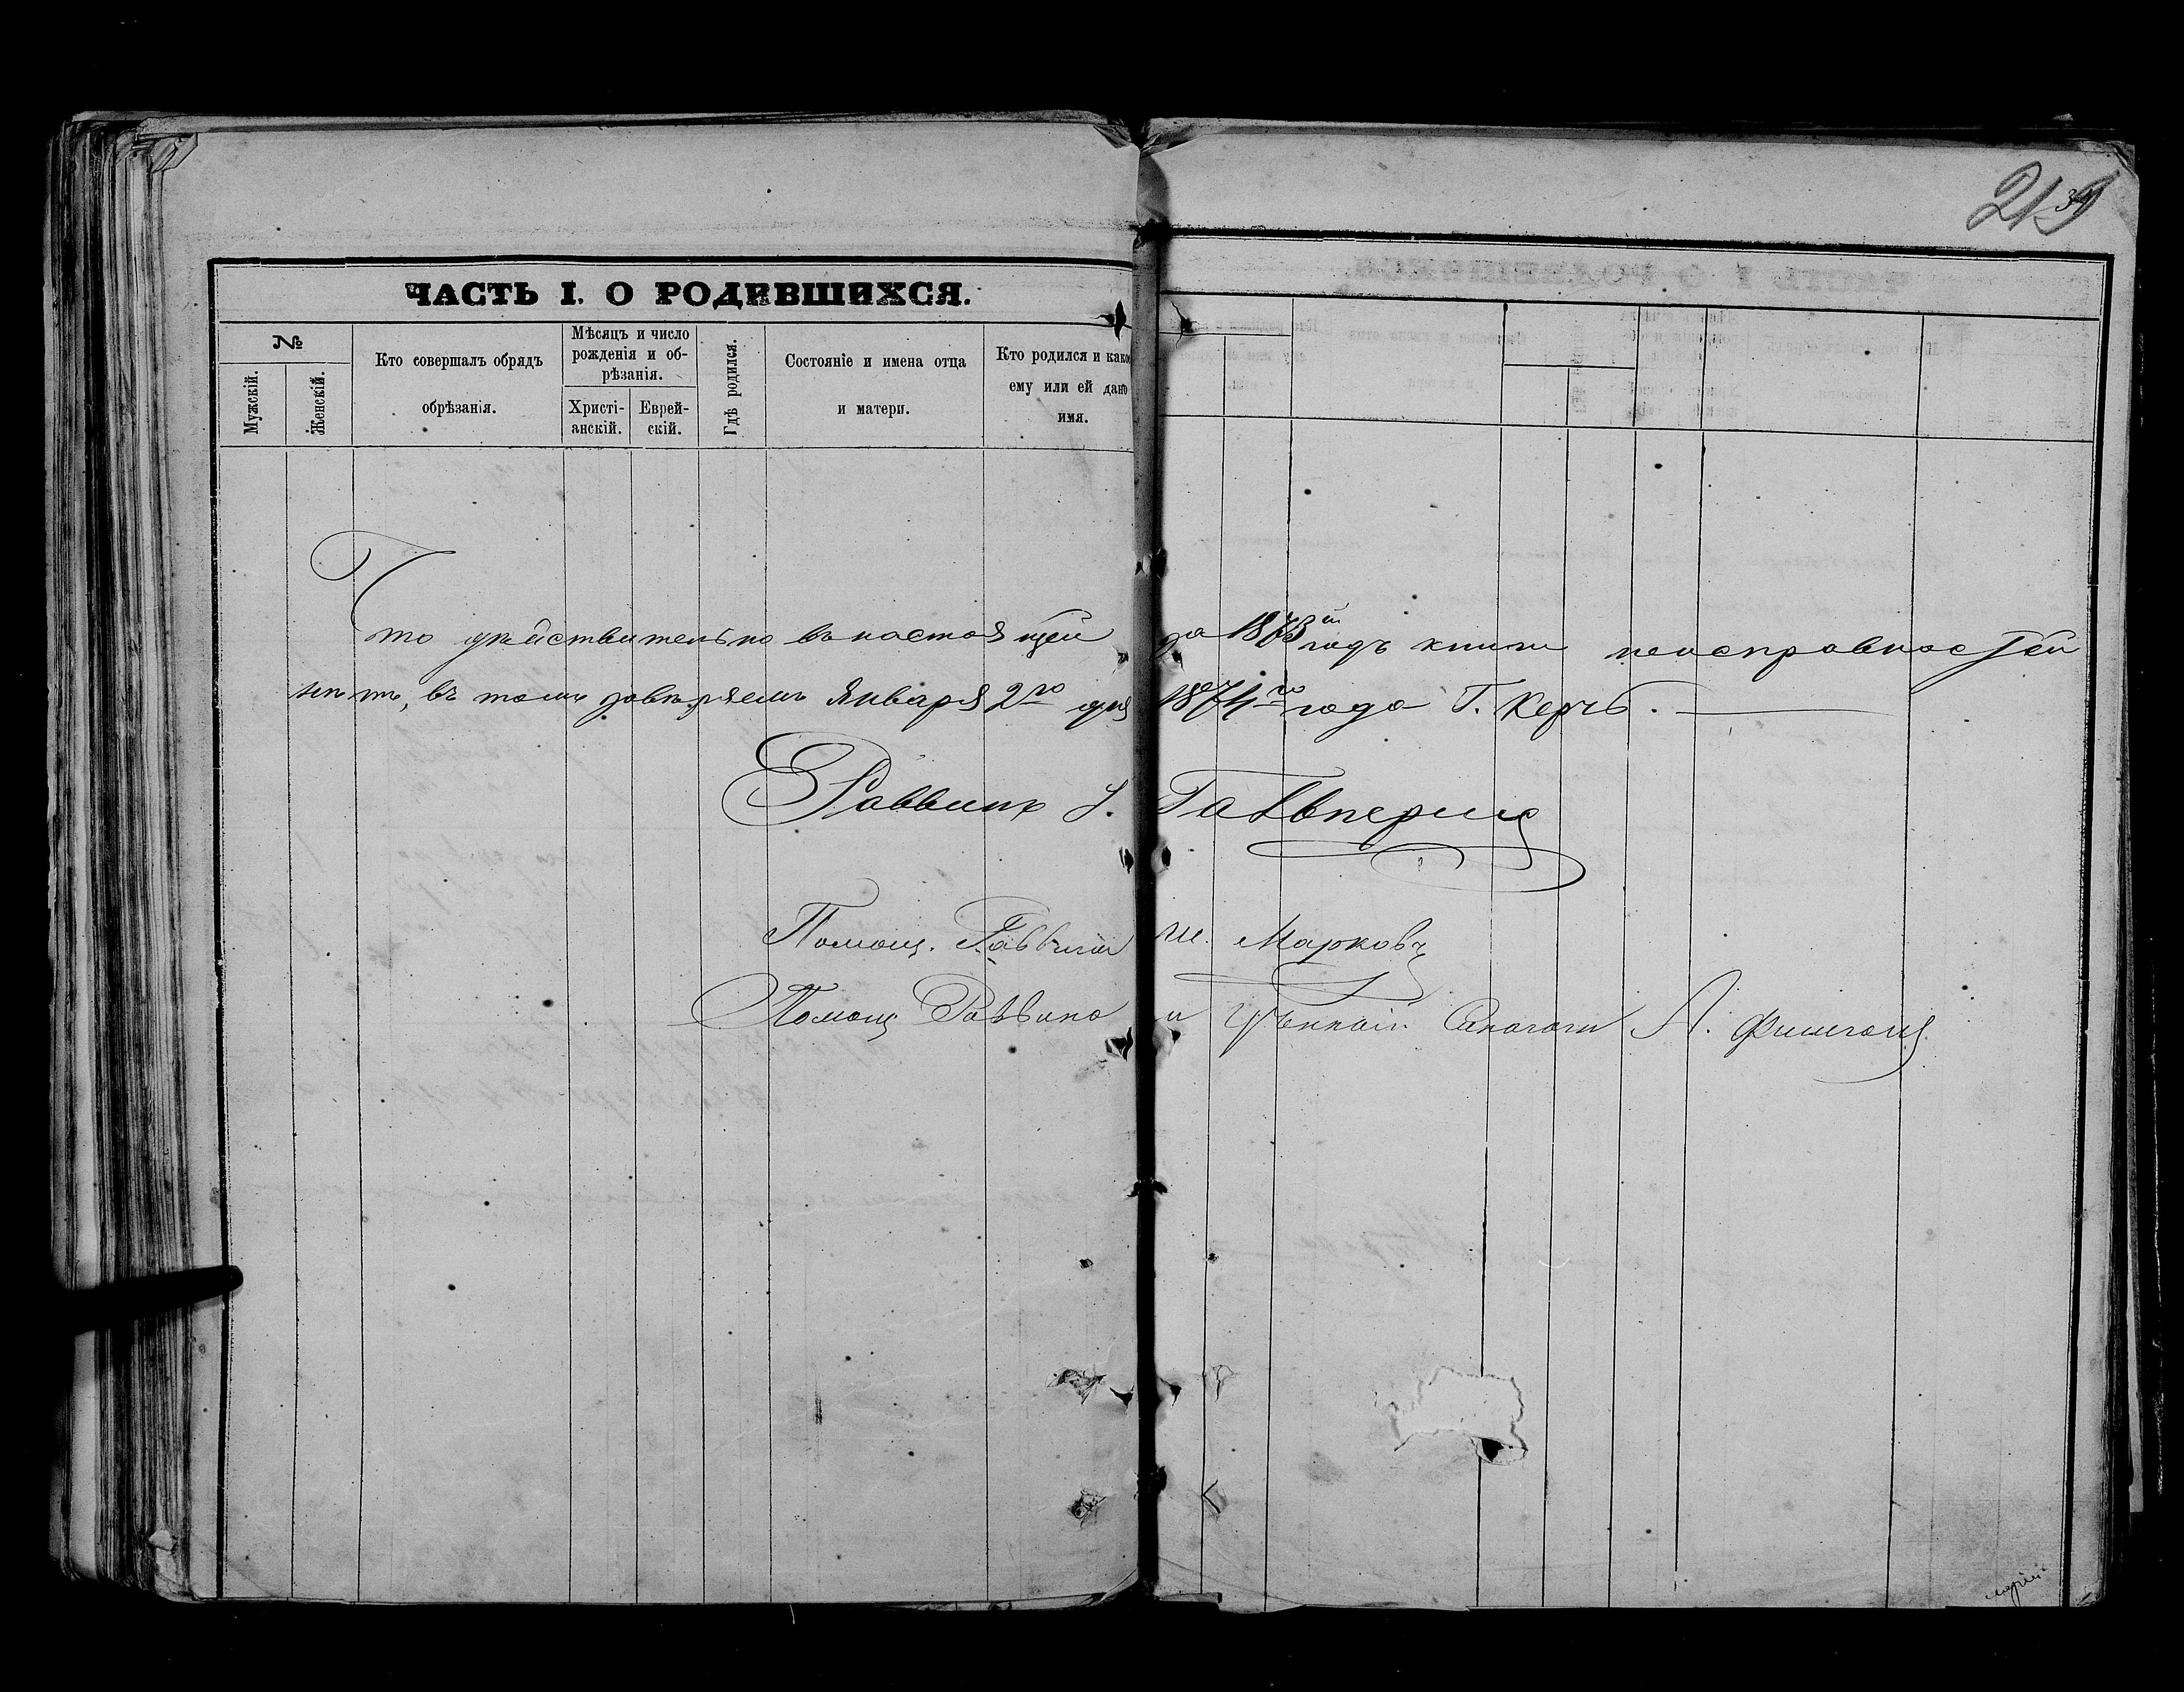 219
ЧАСТЬ I. О РОДИВШИХСЯ.
№
Мужскій.
Женскій.
Кто совершалъ обрядъ
обрѣзанія.
Мѣсяцъ и число
рожденія и об-
рѣзанія.
Христі-
анскій.
Еврей-
скій.
Гдѣ родился.
Состояніе и имена отца
и матери.
Кто родился и какое
ему или ей дано
имя.
Что действительно въ настоящей за 1873й годъ книги неисправностей
нѣтъ, въ томъ завѣряемъ Января 2го дня 1874го года Г. Керчь.
Раввинъ Гальперинъ
Помощ. Раввина М. Марковъ
Помощ Раввина и Синагоги А. Фишгойц